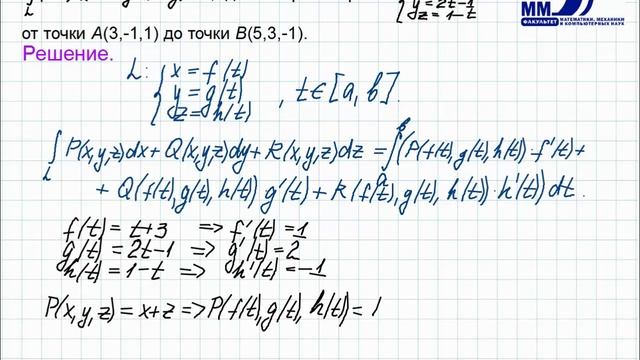 y = 2t-1
z = 1-t
ММ
ФАКУЛЬТЕТ
МАТЕМАТИКИ, МЕХАНИКИ
И КОМПЬЮТЕРНЫХ НАУК
L
от точки A(3,-1,1) до точки B(5,3,-1).
Решение.
L: { x = f(t)
y = g(t) , t∈[a, b].
z = h(t)
∫ P(x,y,z)dx + Q(x,y,z)dy + R(x,y,z)dz = ∫(P(f(t), g(t), h(t))·f'(t) +
L a b
+ Q(f(t), g(t), h(t)) g'(t) + R(f(t), g(t), h(t))·h'(t))dt.
f(t) = t+3 => f'(t) = 1
g(t) = 2t-1 => g'(t) = 2
h(t) = 1-t => h'(t) = -1
P(x,y,z) = x+z => P(f(t), g(t), h(t)) = 1